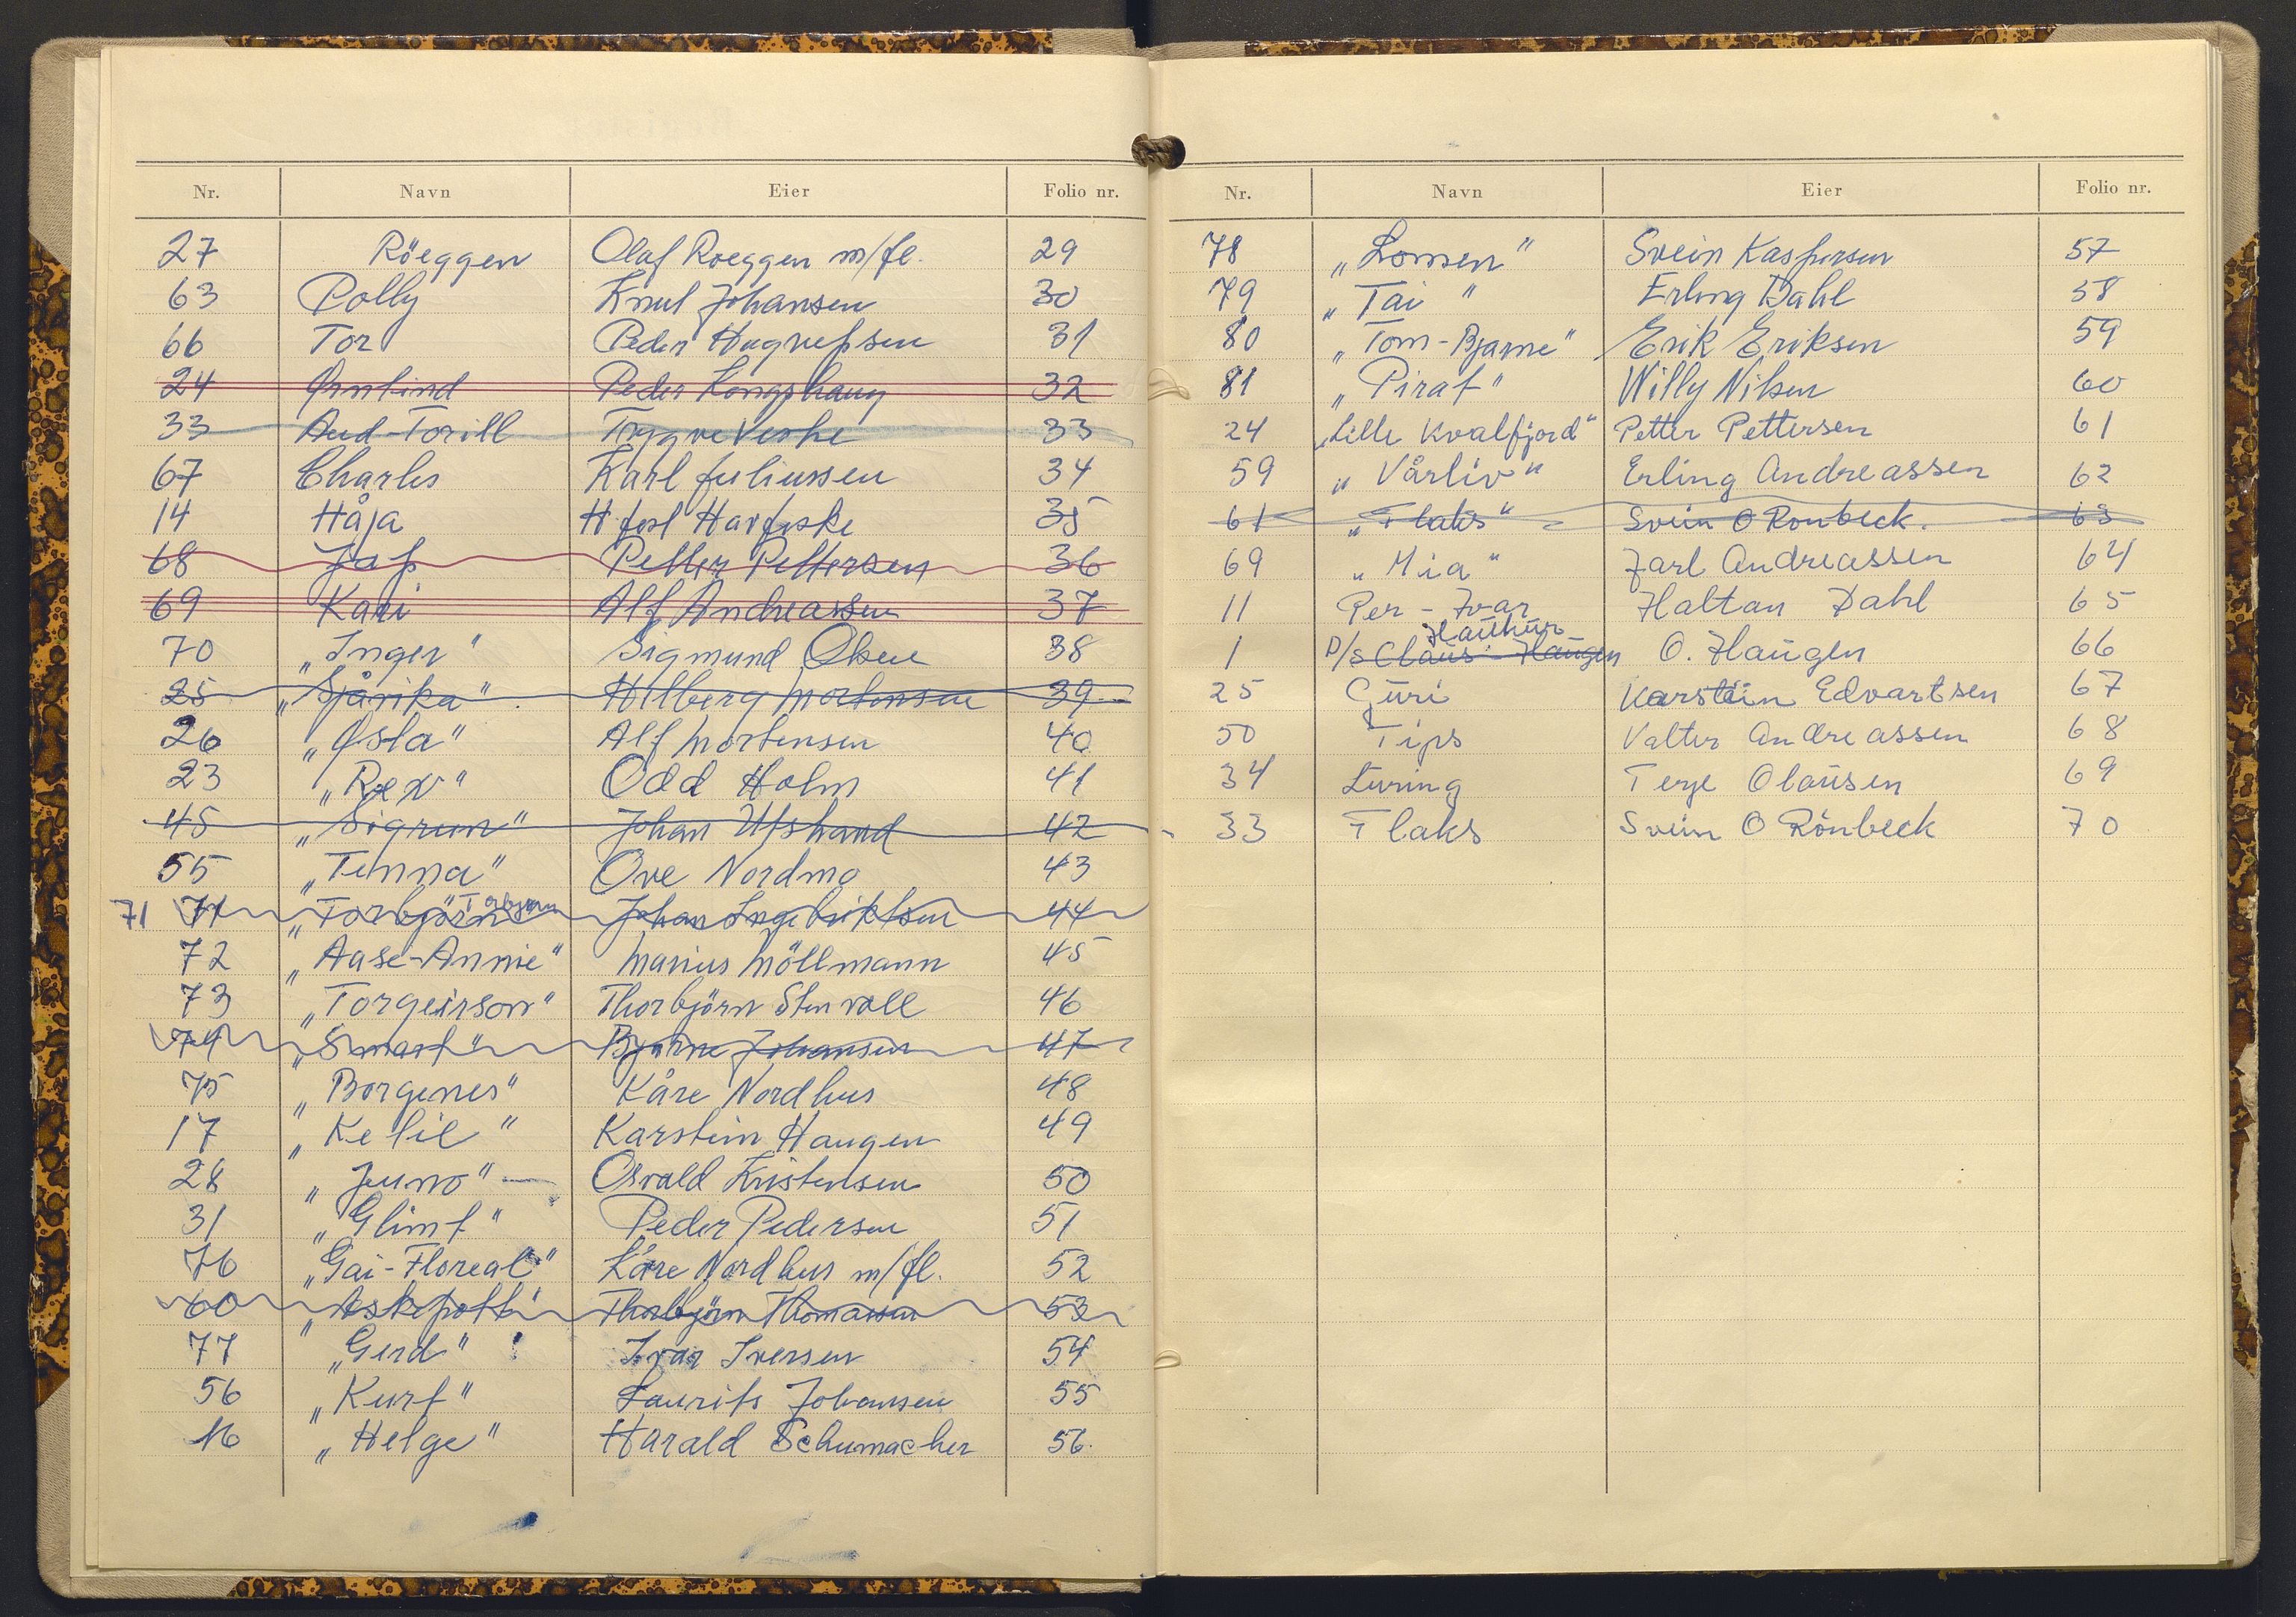 Nr. Navn Eier Folio nr.
27 Röeggen Olaf Roeggen m/fl. 29
63 Polly Knut Johansen 30
66 Tor Peder Hagnessen 31
24 Ørntind Peder Kongshaug 32
33 Aud-Torill Trygve Veske 33
67 Charles Karl Juliussen 34
14 Håja H.fest Havfiske 35
68 Jaß Petter Pettersen 36
69 Kari Alf Andreassen 37
70 „Inger" Sigmund Olsen 38
25 „Sjårika" Hilberg Mortensen 39
26 „Østa" Alf Mortensen 40
23 „Rex" Odd Holm 41
45 „Sigrun" Johan Ulfstrand 42
55 „Tenna" Ove Nordmo 43
71 71 „Torbjörn" Torbjörn Johan Ingebriktsen 44
72 „Aase-Annie" Marius Möllmann 45
73 „Torgeirson" Thorbjörn Stenvoll 46
74 „Smart" Bjarne Johansen 47
75 „Borgenes" Kåre Nordhus 48
17 „Ketil" Karstein Haugen 49
28 „Juno" Osvald Kristensen 50
31 „Glimt" Peder Pedersen 51
76 „Gai-Floreal" Kåre Nordhus m/fl. 52
60 „Askepott" Thorbjörn Thomassen 53
77 „Gerd" Ivar Iversen 54
56 „Kurt" Laurits Johansen 55
16 „Helge" Harald Schumacher 56.
Nr. Navn Eier Folio nr.
78 „Lomen" Svein Kaspersen 57
79 „Tai" Erling Dahl 58
80 „Tom-Bjarne" Erik Eriksen 59
81 „Pirat" Willy Nilsen 60
24 „Lille Kvalfjord" Petter Pettersen 61
59 „Vårliv" Erling Andreassen 62
61 „Flaks" Svein O Rönbeck. 63
69 „Mia" Jarl Andreassen 64
11 Per-Ivar Haltan Dahl 65
Hauhur
1 D/S Claus Haugen O. Haugen 66
25 Guri Karstein Edvartsen 67
50 Tips Valter Andreassen 68
34 Luring Terje Olaüsen 69
33 Flaks Svein O Rönbeck 70